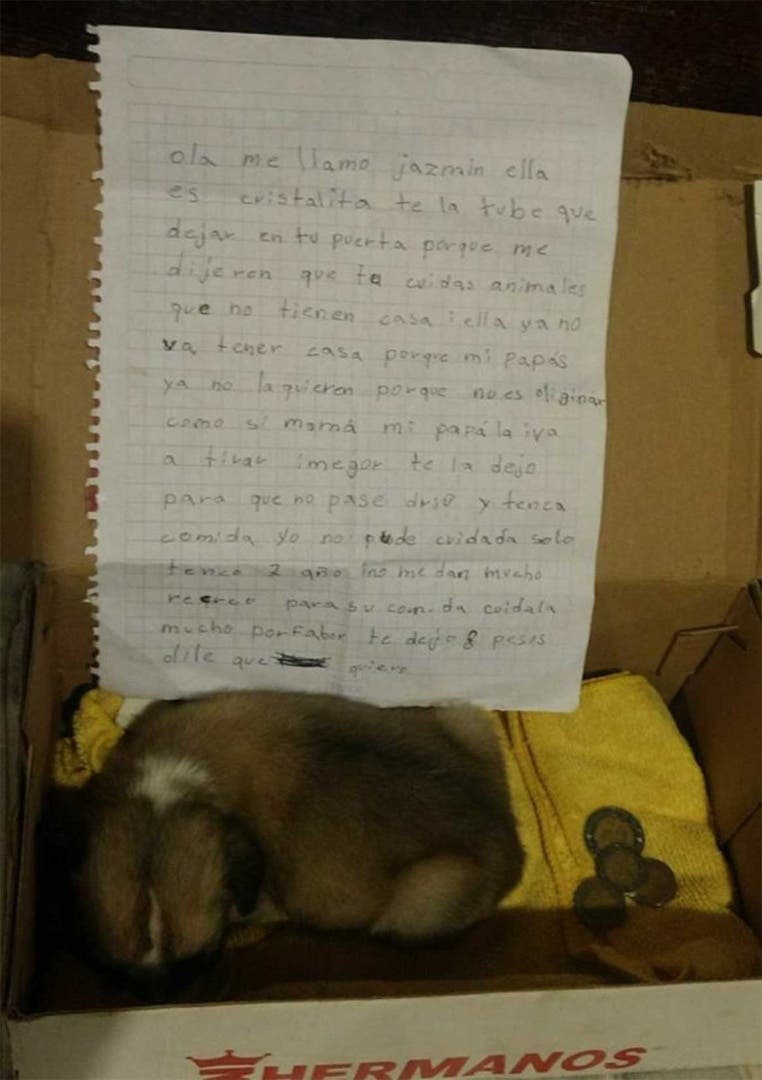 ola me llamo jazmin ella
es cristalita te la tube que
dejar en tu puerta porque me
dijeron que tu cuidas animales
que no tienen casa i ella ya no
va tener casa porque mi papás
ya no la quieren porque no es oliginar
como si mamá mi papá la iva
a tirar imegor te la dejo
para que no pase drio y tenca
comida yo no pude cuidada solo
tenco 7 año ino me dan mucho
recreo para su comida cuidala
mucho porfabor te dejo 8 pesos
dile que quiero
HERMANOS